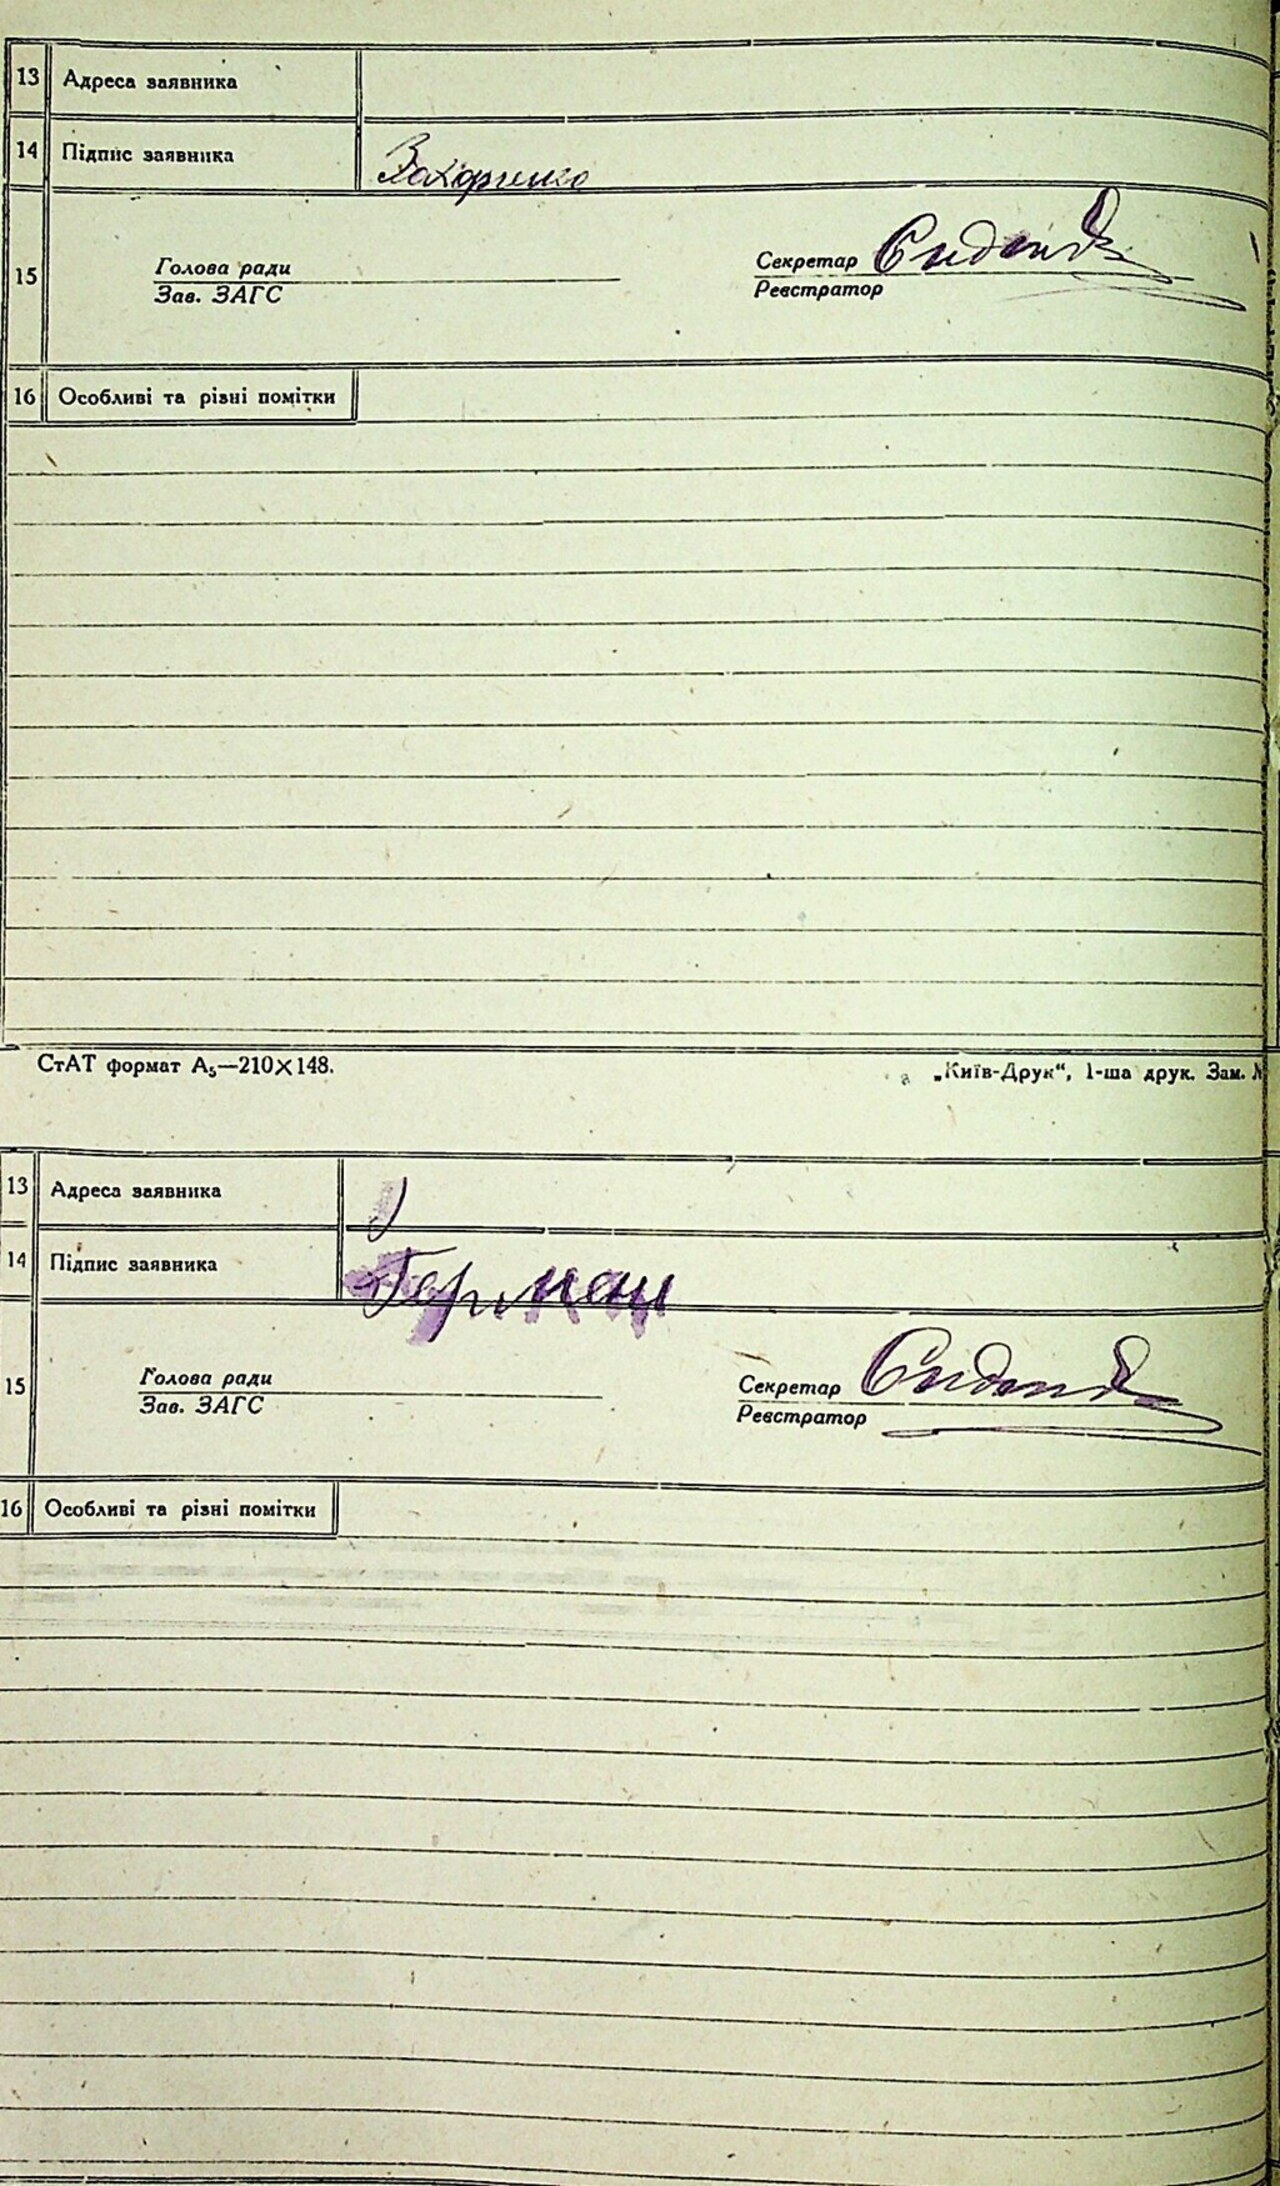 13 Адреса заявника
14 Підпис заявника Захарченко
Голова ради Секретар
15
Зав. ЗАГС Реєстратор
16 Особливі та різні помітки
СтАТ формат А₅—210×148. „Київ-Друк“, 1-ша друк. Зам. №
13 Адреса заявника
14 Підпис заявника Герман
Голова ради Секретар
15
Зав. ЗАГС Реєстратор
16 Особливі та різні помітки